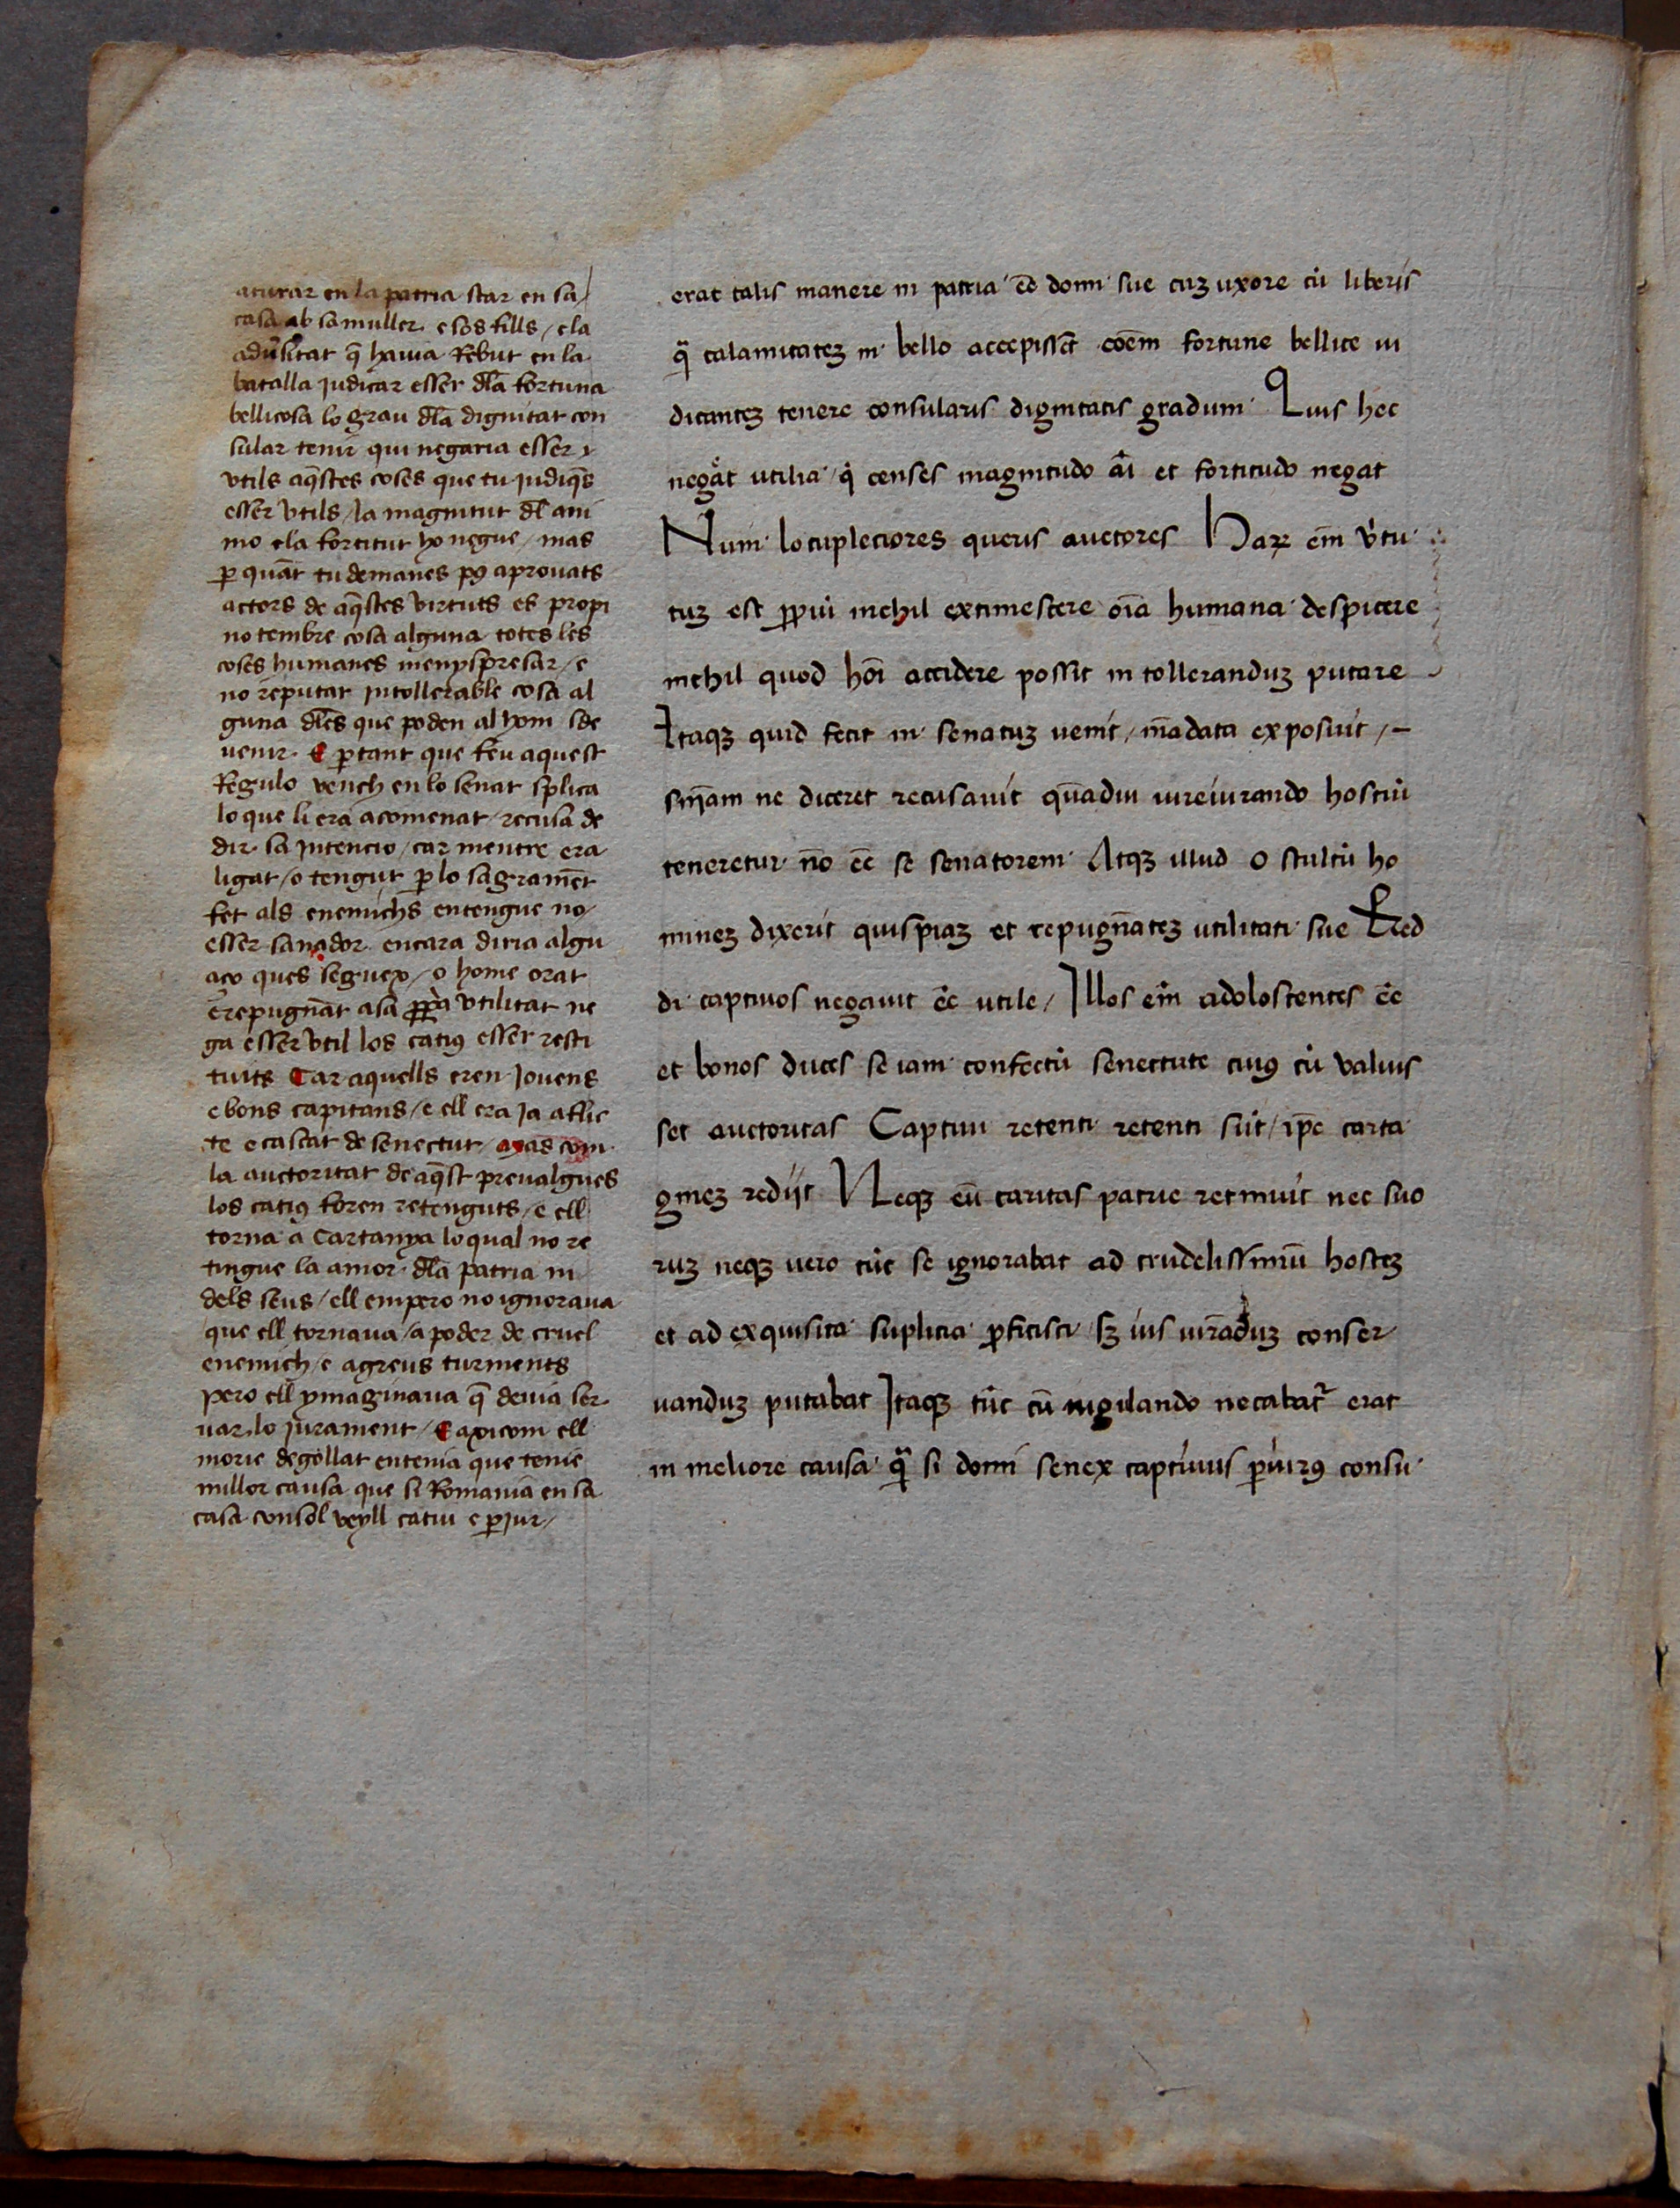 aturar en la patria star en sa/
casa ab sa muller e sos fills / e la
adũsitat q̃ hauia Rebut en la
batalla judicar esser dl̃a fortuna
bellicosa lo grau dl̃a dignitat con
sular tenir qui negaria esser
vtils aq̃stes coses que tu judiq̃s
esser vtils / la magnitut dl̃ ani
mo e la fortitut ho negue / mas
ꝑ quãt tu demanes pꝯ aprouats
actors de aq̃stes virtuts es propi
no tembre cosa alguna totes les
coses humanes menyspresar / e
no reputar intollerable cosa al
guna dl̃es que poden al hom sde
uenir ¶ ꝑ tant que feu aquest
Regulo vench en lo senat splica
lo que li era acomenat / recusa de
dir sa intencio / car mentre era
ligat / o tengut ꝑ lo sagramẽt
fet als enemichs entengue no/
esser sanador encara diria algu
aço ques seguex / o home orat
e repugnãt a sa ꝓp̃a vtilitat ne
ga esser vtil los catiꝯ esser resti
tuits Car aquells eren Jouens
e bons capitans / e ell era ja aflic
te e cascat de senectut / mas com
la auctoritat de aq̃st preualgues
los catiꝯ foren retenguts / e ell
torna a Cartanya lo qual no re
tingue la amor dl̃a patria ni
dels seus / ell empero no ignoraua
que ell tornaua / a poder de cruel
enemich / e agreus turments
pero ell ymaginaua q̃ deuia ser
uar lo jurament / ¶ axi com ell
morie degollat entenia que tenie
millor causa que si Romania en sa
casa consol veyll catiu e ꝑjur /
erat talis manere in patria eẽ domi sue cuʒ uxore cũ liberis
q̃ calamitateʒ in bello accepisset cõem fortune bellice iu
dicanteʒ tenere consularis dignitatis gradum Quis hec
negat utilia q̇ censes magnitudo ãi et fortitudo negat
Num locupletiores queris auctores Haꝝ em̃ v̉tu
tuʒ est ꝓpiũ nichil extimescere oĩa humana despicere
nichil quod hoĩ accidere possit in tolleranduʒ putare
Itaqʒ quid fecit in senatuʒ uenit / mãdata exposuit /
snĩam ne diceret recusauit quãdiu iureiurando hostiũ
teneretur nõ eẽ se senatorem Atqʒ illud o stultũ ho
mineʒ dixerit quispiaʒ et repugnãteʒ utilitati sue Red
di captiuos negauit eẽ utile / Illos eĩm adoloscentes eẽ
et bonos duces se iam confectũ senectute cuiꝯ cũ valuis
set auctoritas Captiui retenti retenti sũt / ip̃e carta
gineʒ rediit Neqʒ eũ caritas patrie retinuit nec suo
ruʒ neqʒ uero tũc se ignorabat ad crudelissimũ hosteʒ
et ad exquisita suplicia ꝓficisci sʒ ius iurãduʒ conser
uanduʒ putabat Itaqʒ tũc cũ uigilando necabat᷑ erat
in meliore causa q̃ si domi senex captiuus ꝑiurꝯ consu